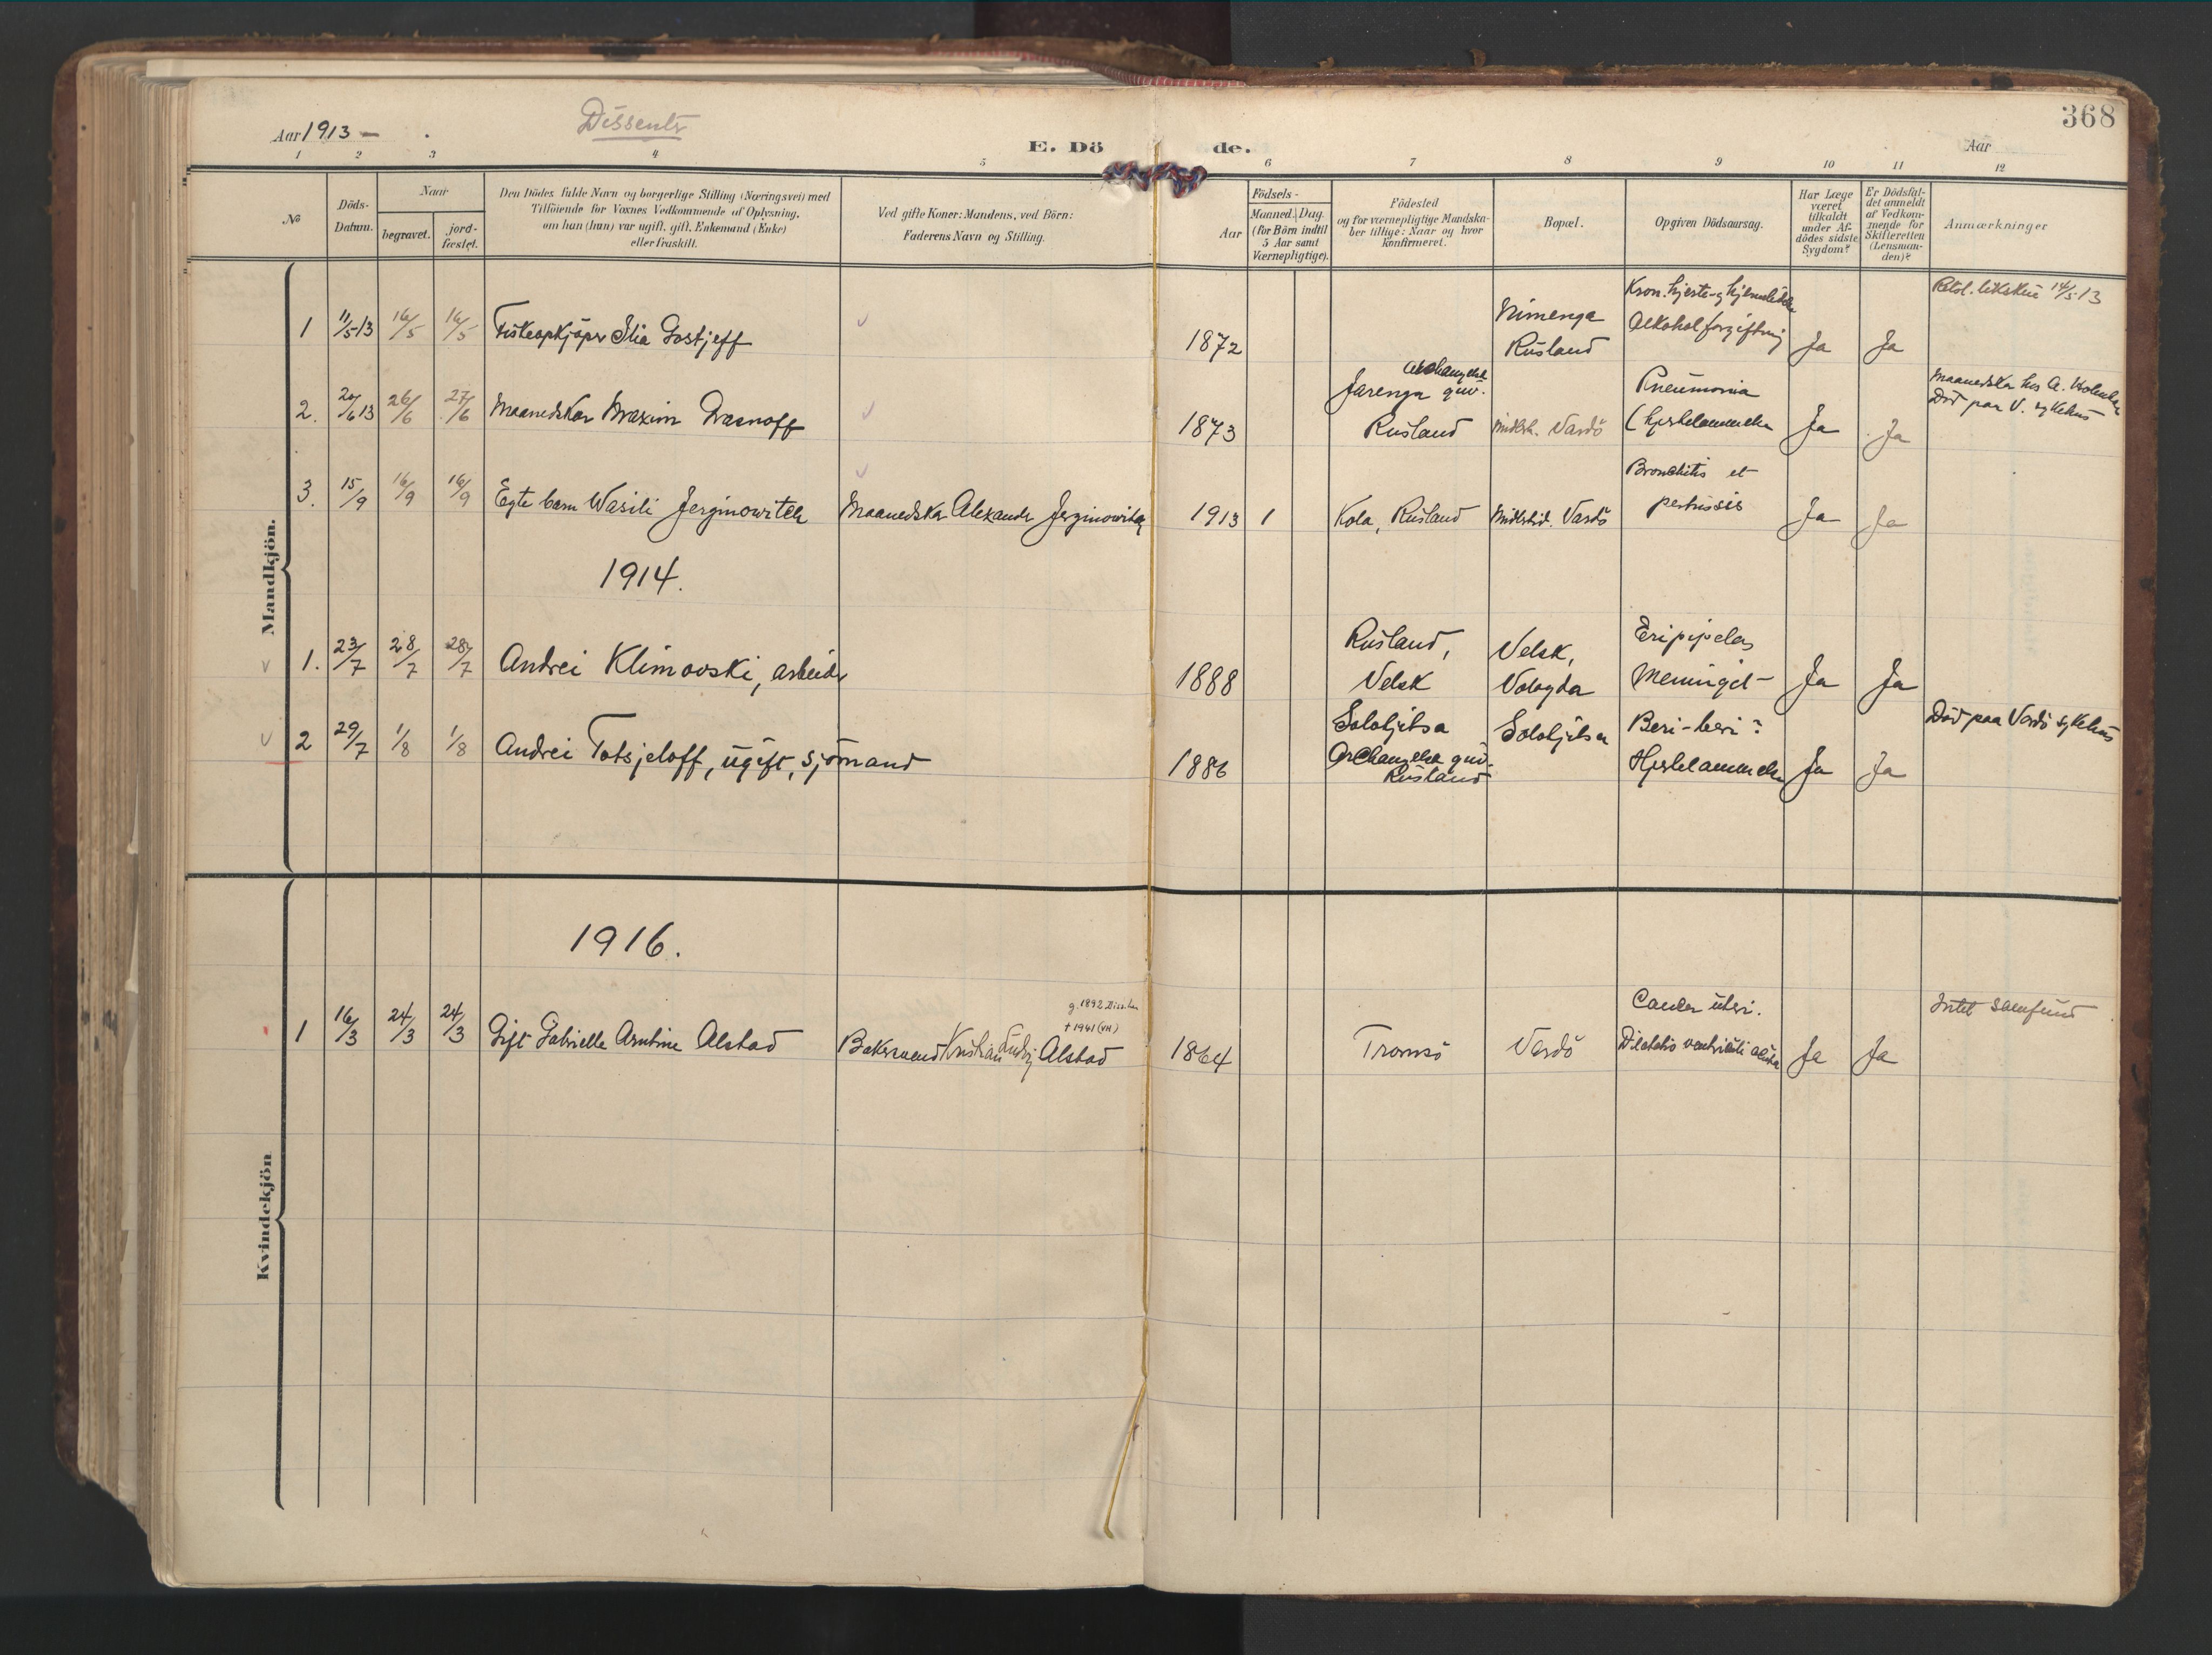 368
Aar 1913 —
Dissentr
E. Döde.
Aar
1 2 3 4 5 6 7 8 9 10 11 12
No
Döds-
Datum.
Naar
begravet.
jord-
fæstet.
Den Dödes fulde Navn og borgerlige Stilling (Næringsvei) med
Tilföiende for Voxnes Vedkommende af Oplysning,
om han (hun) var ugift, gift, Enkemand (Enke)
eller fraskilt.
Ved gifte Koner: Mandens, ved Börn:
Faderens Navn og Stilling.
Födsels-
Aar
Maaned. Dag.
(for Börn indtil
5 Aar samt
Værnepligtige).
Födested
og for værnepligtige Mandska-
ber tillige: Naar og hvor
Konfirmeret.
Bopæl.
Opgiven Dödsaarsag.
Har Læge
været
tilkaldt
under Af-
dödes sidste
Sygdom?
Er Dödsfal-
det anmeldt
af Vedkom-
mende for
Skifteretten
(Lensman-
den)?
Anmærkninger
Mandkjön.
1 11/5 13 16/5 16/5 Fiskeopkjöper Ilia Gostjeff 1872
Nimenga
Rusland
Kron. hjerte-
Alkoholforgiftning
Ja Ja
14/5 13
2. 26/6 27/6 Maanedskar Maxim 1873
Archangelsk
Jarenga guv.
Rusland
Vardö
Pneumonia
(Hjertelammelse
Ja Ja
Maanedskar hos A.
Död paa V. sykehus
3. 15/9 16/9 16/9 Egte barn Wasili Jerginowitch Maanedskar Alexander Jerginowitch 1913 1 Kola, Rusland Midlertid. Vardö
Bronchitis et
pertussis
Ja Ja
1914.
1. 23/7 28/7 28/7 Andrei Klimovski, arbeider 1888
Rusland,
Velsk
Velsk,
Vologda
Eripipelas
Meningit
Ja Ja
2 29/7 1/8 1/8 Andrei Totsjeloff, ugift, sjömand 1886
Solotjitsa
Archangelsk guv.
Rusland
Solotjitsa
Beri-beri?
Hjertelammelse
Ja Ja
Död paa Vardö sykehus
Kvindekjön
1916.
1 16/3 24/3 24/3 Gift Gabrielle Arntine Alstad
g. 1892
† 1941 (VH)
Bakersvend Kristian Ludvig Alstad
1864 Tromsö Vardö
Cancer uteri.
Dilatatio ventriculi
Ja Ja
Intet samfund